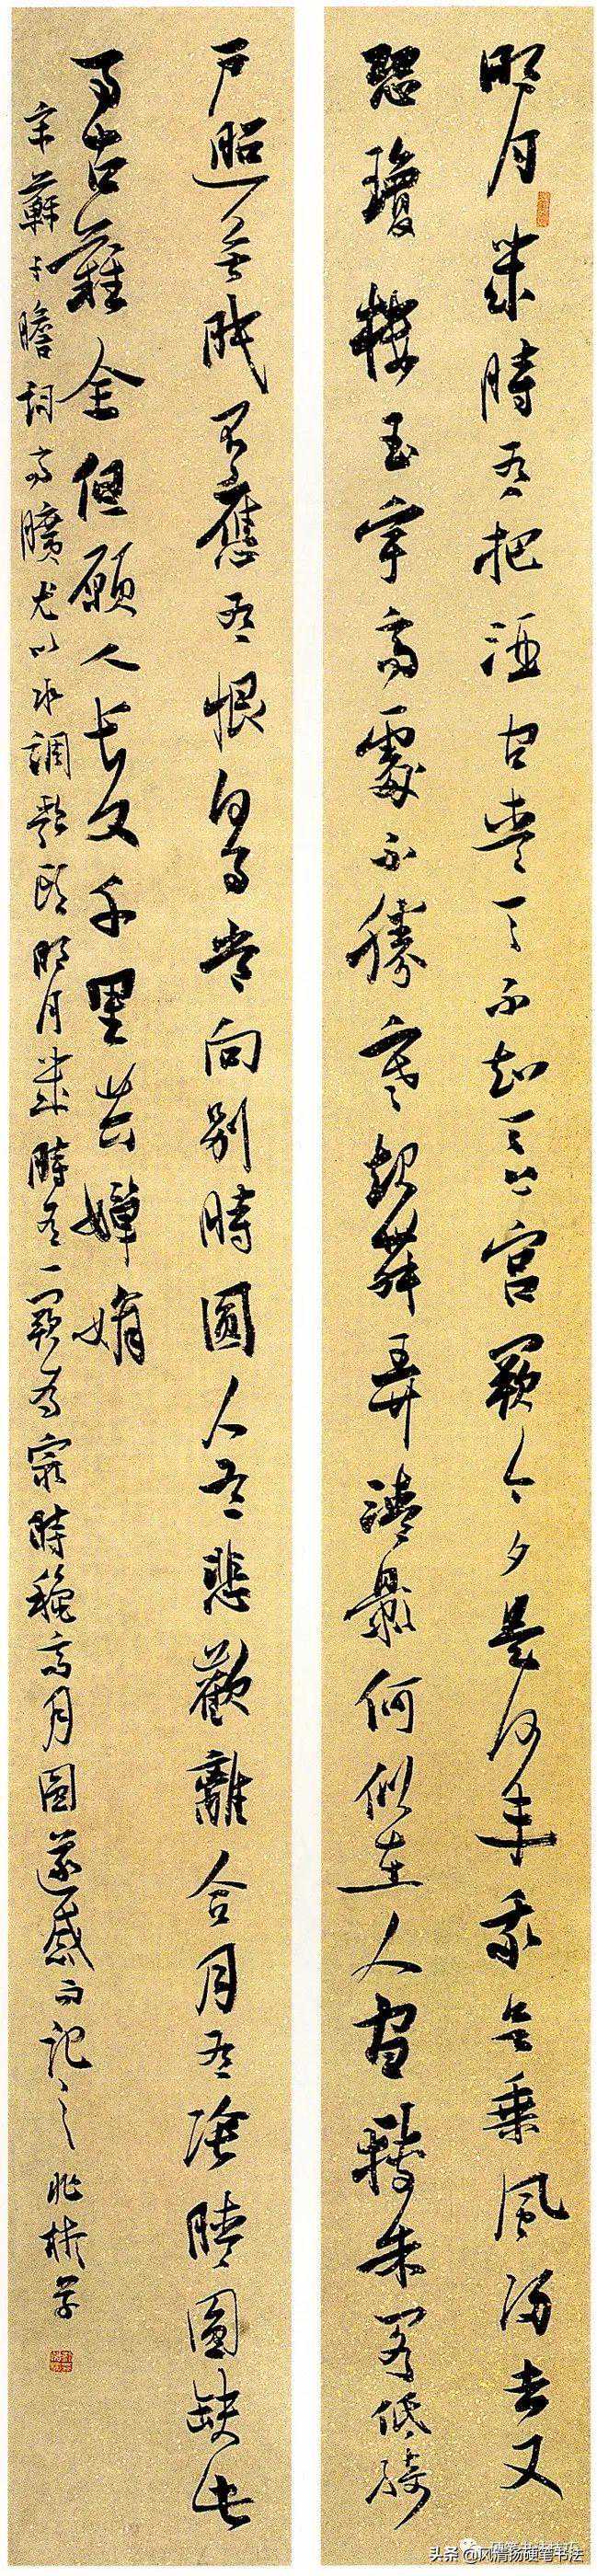 明月幾時有把酒問青天不知天上宮闕今夕是何年我欲乘風歸去又
恐瓊樓玉宇高處不勝寒起舞弄清影何似在人間轉朱閣低綺
戶照無眠不應有恨何事長向別時圓人有悲歡離合月有陰晴圓缺此
事古難全但願人長久千里共嬋娟
宋蘇子瞻詞高曠尤以水調歌頭明月幾時有一闋為最時穐高月圓遂感而記之
头条 @风清扬硬笔书法